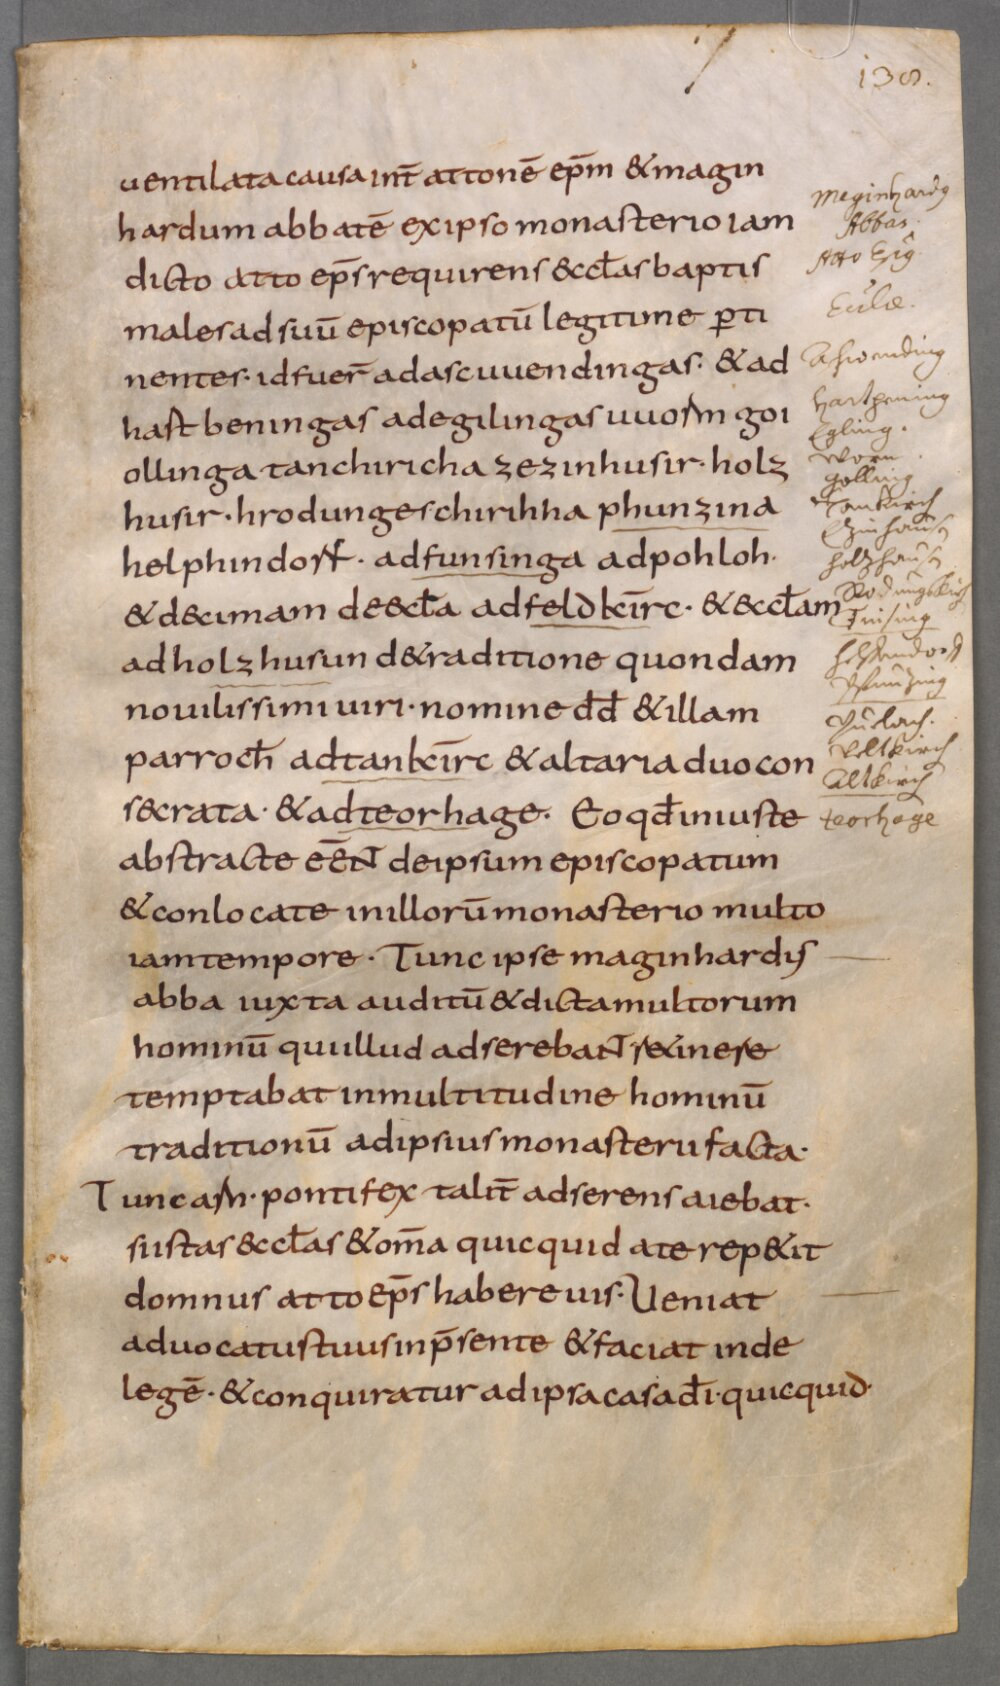 138.
uentilata causa int̄ attonē ep̄m & magin
hardum abbatē ex ipso monasterio iam
dicto atto ep̄s requirens & eccl̄as baptis
males ad suū episcopatū legitime ꝑti
nentes· id fuer̄ ad ascuuendingas· & ad
hastbeningas ad egilingas uuorm goi
ollinga tanchiricha zezinhusir· holz
husir· hrodungeschirihha phunzina
helphindorf· ad funsinga ad pohloh·
& decimam de eccl̄a ad feldkīrc· & eccl̄am
ad holzhusun de traditione quondam
nouilissimi uiri· nomine d̄d̄ & illam
parroch̄ ad tankīrc & altaria duo con
secrata· & ad teorhage· Eo qd̄ iniuste
abstracte eēNT de ipsum episcopatum
& conlocate in illorū monasterio multo
iam tempore· Tunc ipse maginhardus
abba iuxta auditū & dicta multorum
hominū qui illud adserebaNT retinere
temptabat in multitudine hominū
traditionū ad ipsius monasterii facta·
Tunc arn· pontifex talit̄ adserens aiebat·
si istas eccl̄as & om̄a quicquid a te repetit
domnus atto ep̄s habere uis· Ueniat
aduocatus tuus in p̄sente & faciat inde
legē· & conquiratur ad ipsa casa d̄i· quicquid·
Meginhardꝰ
Abbas.
Atto Ep̄s
Eccl̄ae.
Aschwending
Hartpening
Egling.
Worn
golling
Tankirch
Zinhausn
Holzhausn
Rodungskirch
Finsing
Helfendorf
Pfunzing
Puelach.
Veltkirch
Altkirch
teorhage